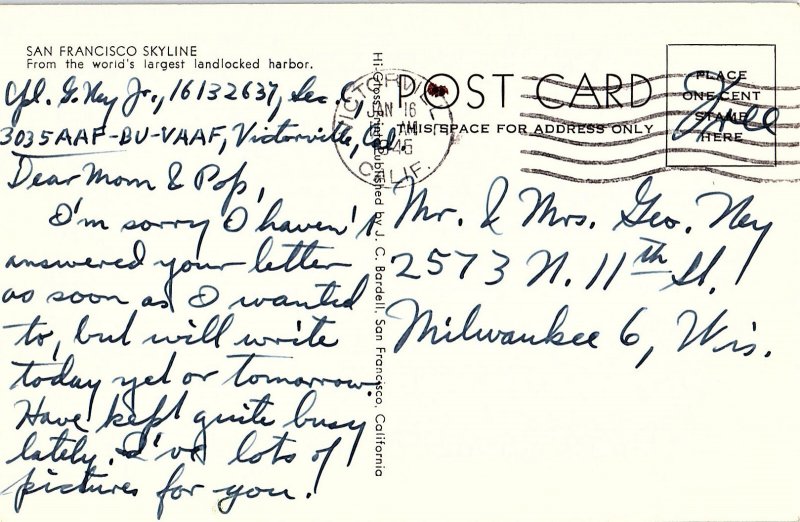 SAN FRANCISCO SKYLINE
From the world's largest landlocked harbor.
Cpl. G. Ney Jr., 16132637, Sec. C,
3035 AAF-BU-VAAF, Victorville, Cal.
Dear Mom & Pop,
I'm sorry I haven't
answered your letter
as soon as I wanted
to, but will write
today yet or tomorrow.
Have kept quite busy
lately. I've lots of
pictures for you!
Published by J. C. Bardell, San Francisco, California
VICTORVILLE
JAN 16
AM
1945
CALIF.
POST CARD
THIS SPACE FOR ADDRESS ONLY
PLACE
ONE CENT
STAMP
HERE
Free
Mr. & Mrs. Geo. Ney
2573 N. 11th St.
Milwaukee 6, Wis.